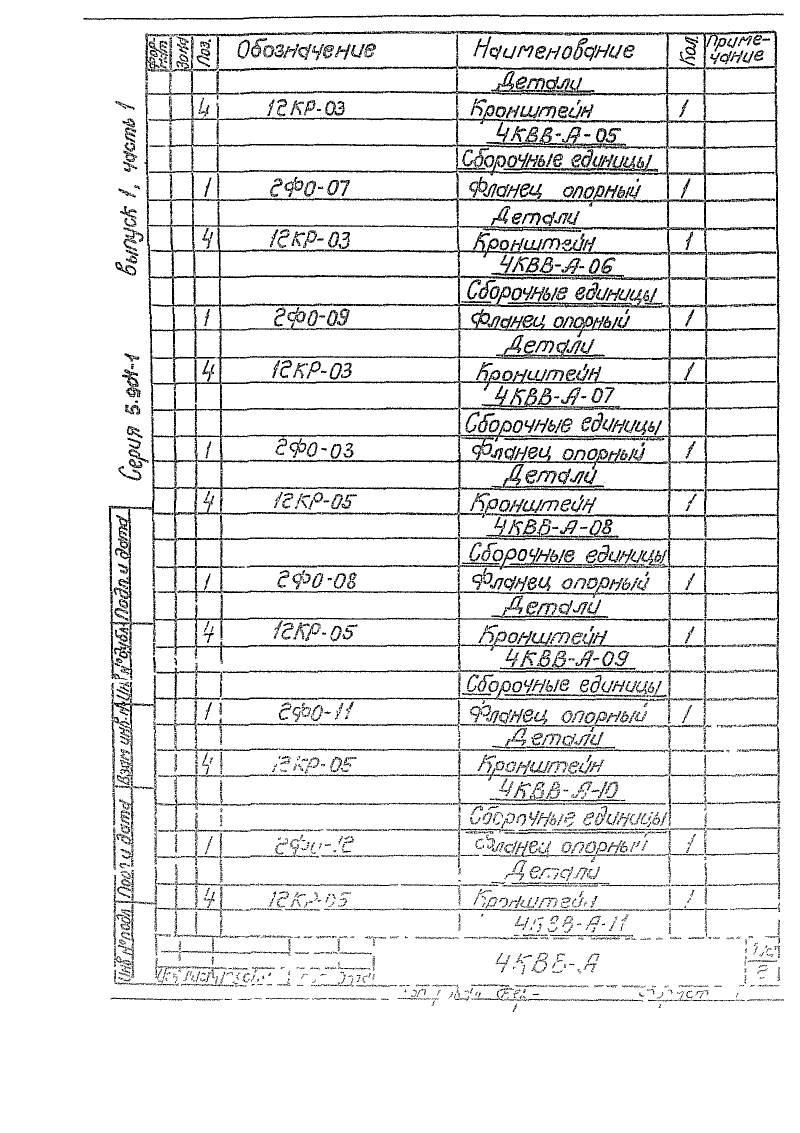 Формат Зона Поз. Обозначение Наименование Кол. Примечание
Детали
4 12КР-03 Кронштейн 1
4КВВ-А-05
Сборочные единицы
1 2ФО-07 Фланец опорный 1
Детали
4 12КР-03 Кронштейн 1
4КВВ-А-06
Сборочные единицы
1 2ФО-09 Фланец опорный 1
Детали
4 12КР-03 Кронштейн 1
4КВВ-А-07
Сборочные единицы
1 2ФО-03 Фланец опорный 1
Детали
4 12КР-05 Кронштейн 1
4КВВ-А-08
Сборочные единицы
1 2ФО-08 Фланец опорный 1
Детали
4 12КР-05 Кронштейн 1
4КВВ-А-09
Сборочные единицы
1 2ФО-11 Фланец опорный 1
Детали
4 12КР-05 Кронштейн
4КВВ-А-10
Сборочные единицы
1 2ФО-12 Фланец опорный 1
Детали
4 12КР-05 Кронштейн 1
4КВВ-А-11
4КВВ-А
2
Серия 5.904-1 выпуск 1, часть 1
Инв № подл
Подп и дата
Взам инв. №
Инв № дубл
Подп. и дата